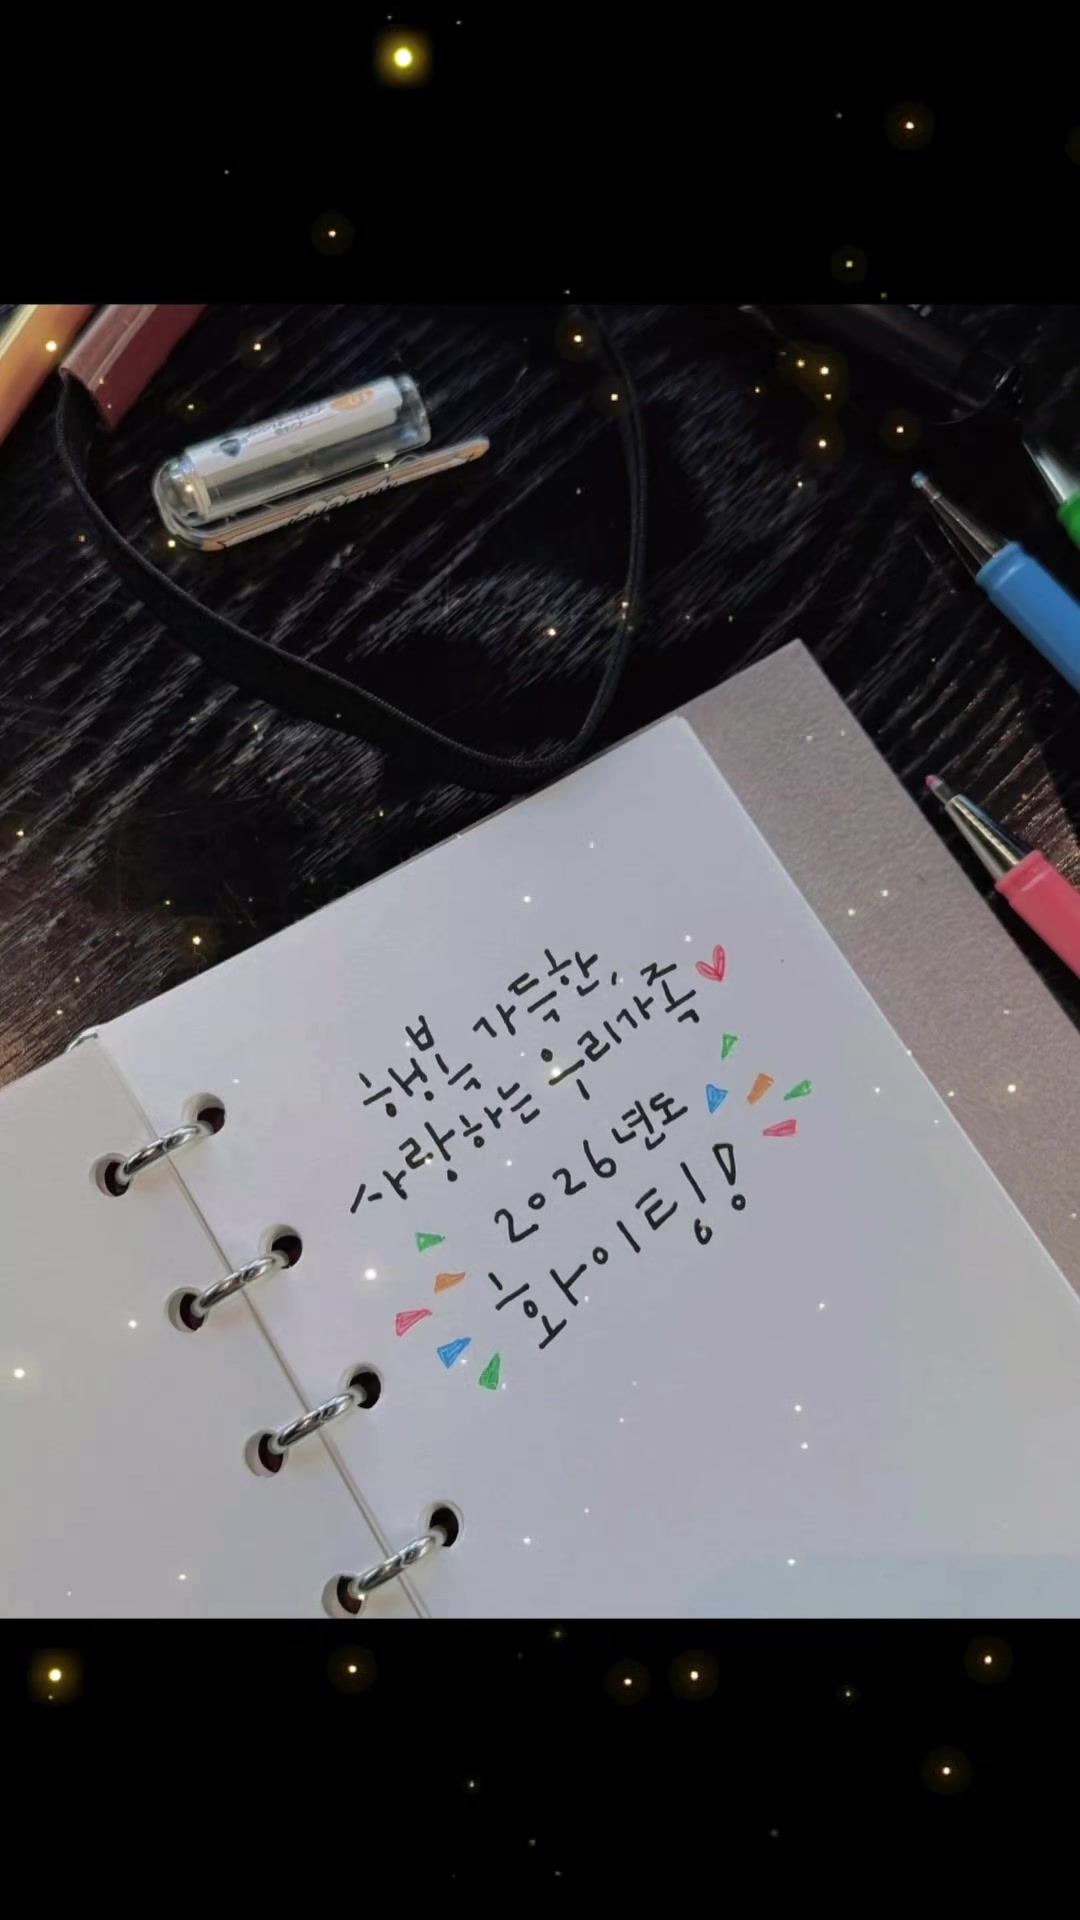 행복 가득한,
사랑하는 우리가족
2026년도
화이팅!